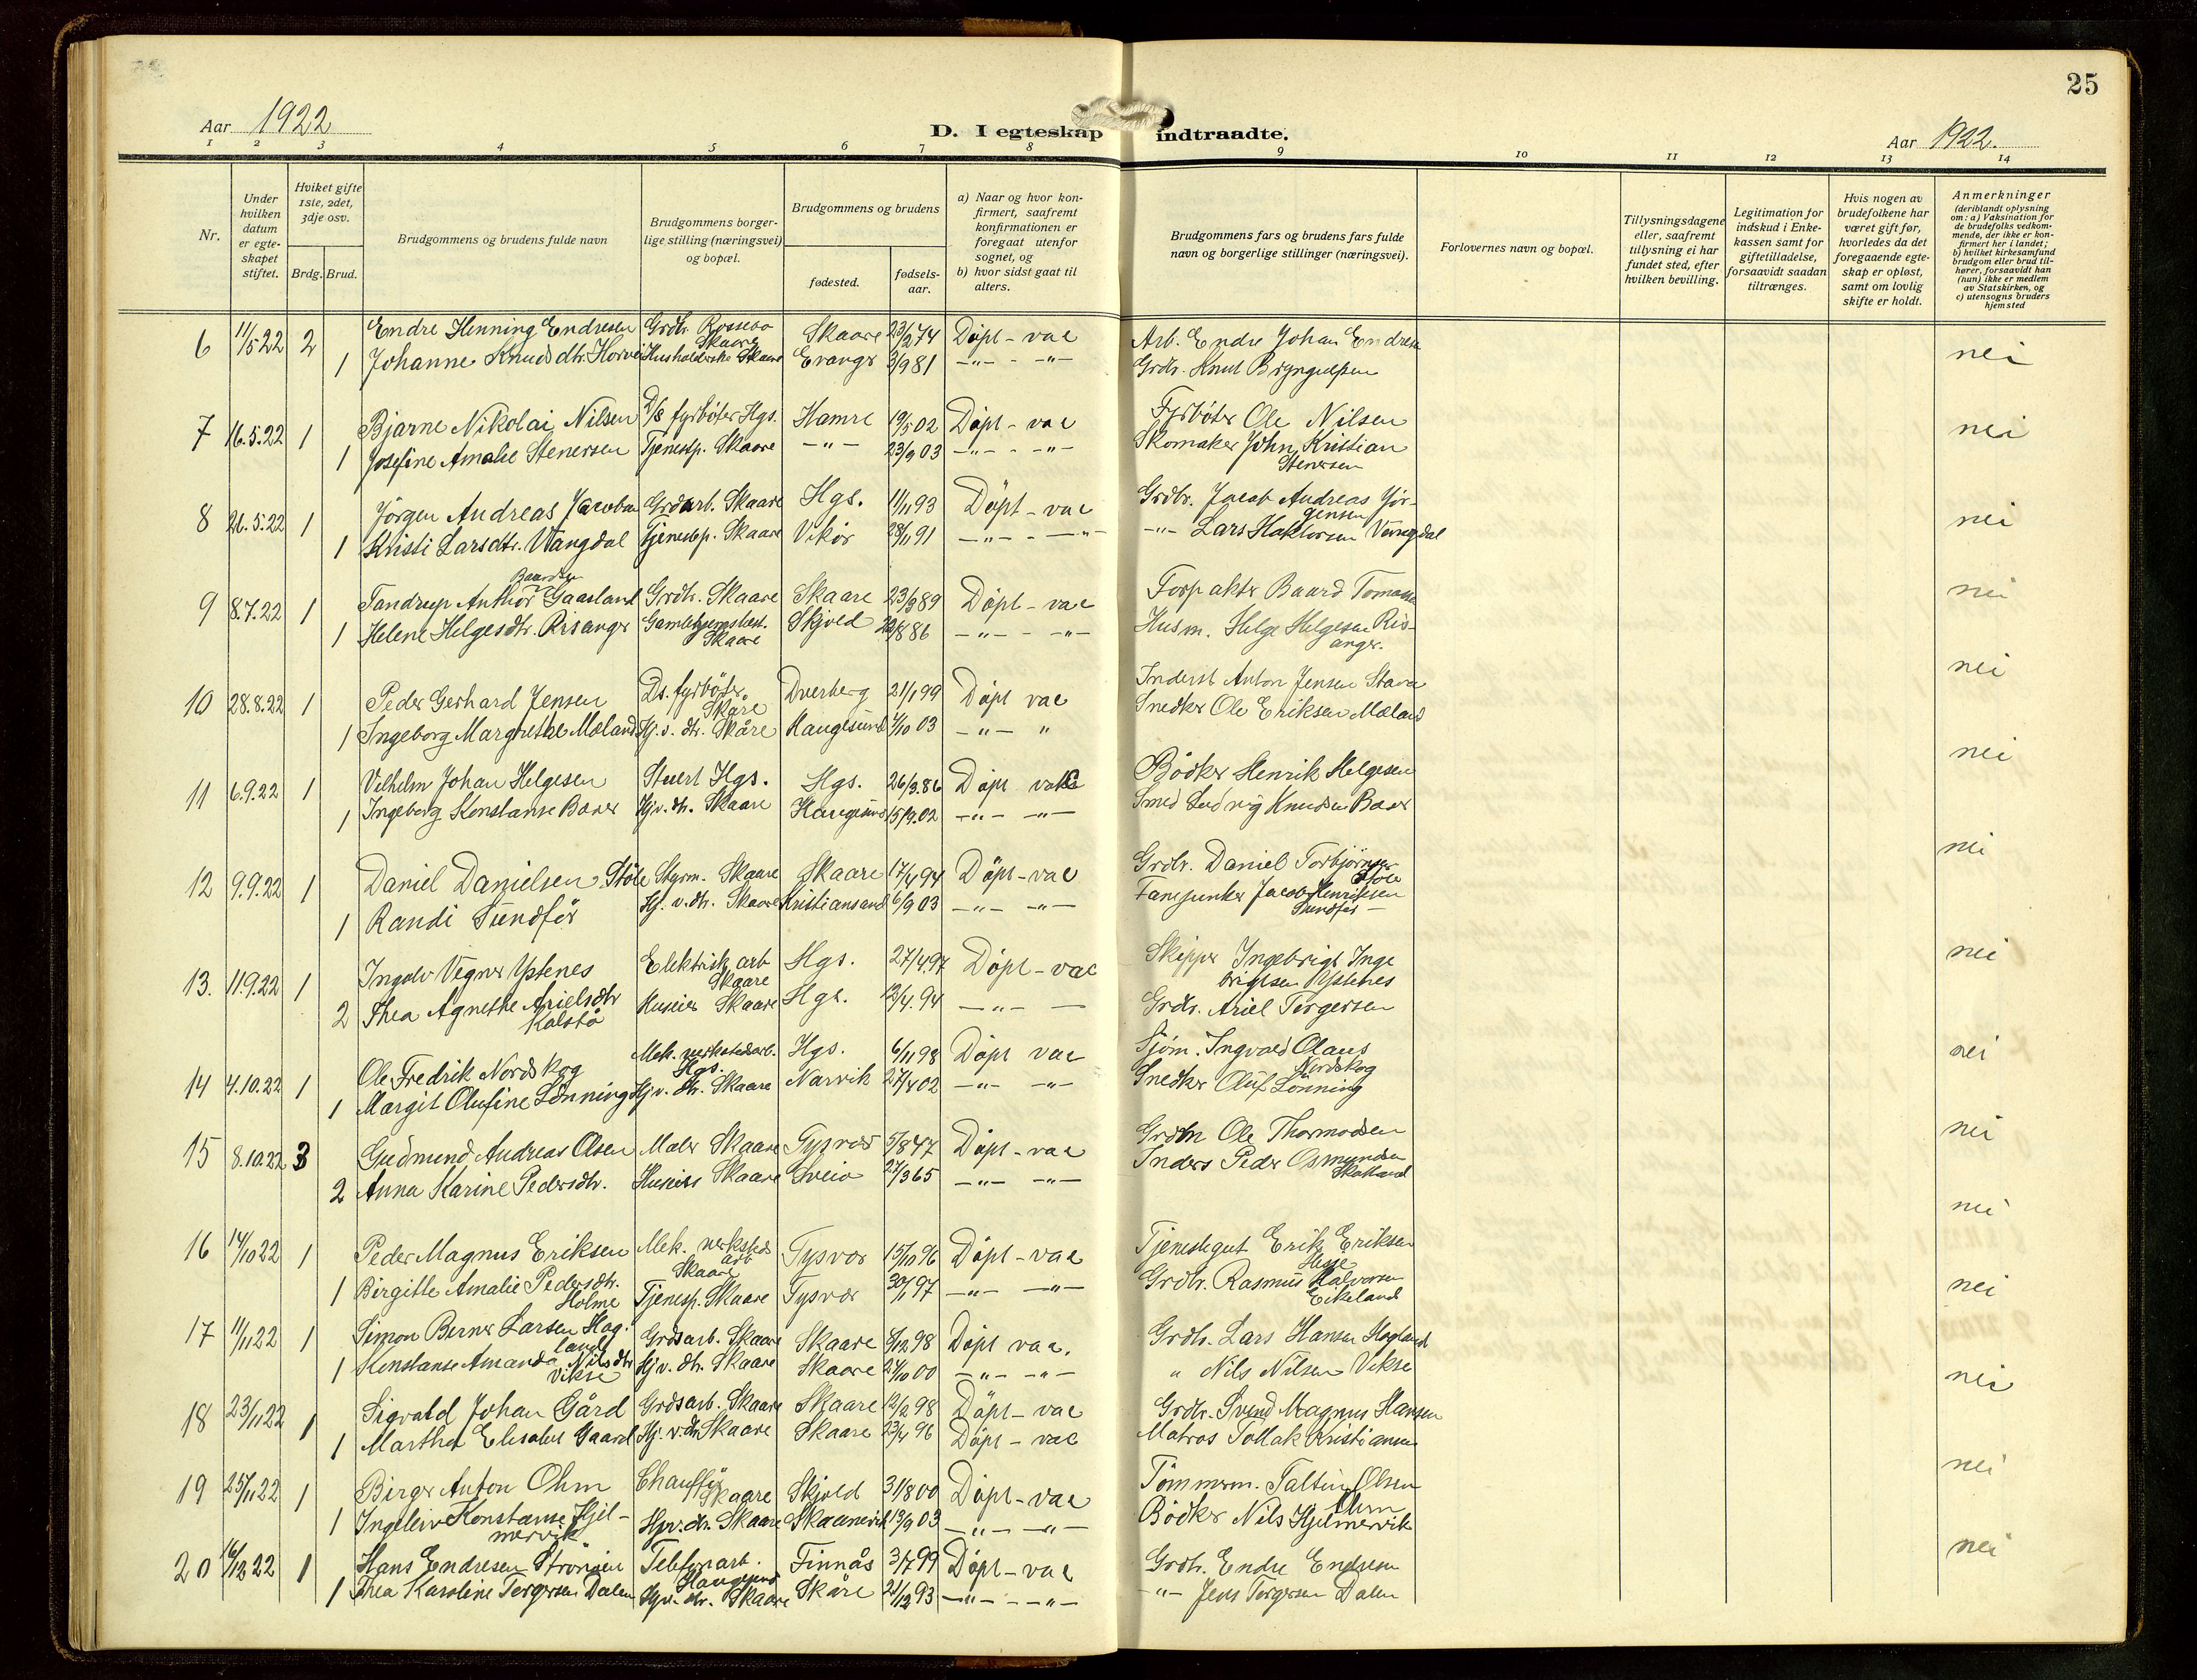 25
Aar 1922
D. I egteskap indtraadte.
Aar 1922.
1 2 3 4 5 6 7 8 9 10 11 12 13 14
Nr.
Under hvilken datum er egte-skapet stiftet.
Hviket gifte 1ste, 2det, 3dje osv.
Brdg. Brud.
Brudgommens og brudens fulde navn
Brudgommens borger-lige stilling (næringsvei) og bopæl.
Brudgommens og brudens
fødested.
fødsels-aar.
a) Naar og hvor kon-firmert, saafremt konfirmationen er foregaat utenfor sognet, og
b) hvor sidst gaat til alters.
Brudgommens fars og brudens fars fulde navn og borgerlige stillinger (næringsvei).
Forlovernes navn og bopæl.
Tillysningsdagene eller, saafremt tillysning ei har fundet sted, efter hvilken bevilling.
Legitimation for indskud i Enke-kassen samt for giftetilladelse, forsaavidt saadan tiltrænges.
Hvis nogen av brudefolkene har været gift før, hvorledes da det foregaaende egte-skap er opløst, samt om lovlig skifte er holdt.
Anmerkninger
(deriblandt oplysning om: a) Vaksination for de brudefolks vedkom-mende, der ikke er kon-firmert her i landet; b) hvilket kirkesamfund brudgom eller brud til-hører, forsaavidt han (hun) ikke er medlem av Statskirken, og c) utensogns bruders hjemsted
6 11/5 22 2 Endre Henning Endresen Grdbr. Rossebø Skaare Skaare 23/2 74 Döpt - vac Arb. Endre Johan Endresen nei
1 Johanne Knudsdtr. Horvei Husholderske Skaare Evanger 3/9 81 -"- -"- Grdbr. Knut Brynjulfsen
7 16.5.22 1 Bjarne Nikolai Nilsen D/s fyrböter Hgs. Hamre 19/5 02 Döpt - vac Fyrböter Ole Nilsen nei
1 Josefine Amalie Stenersen Tjenestp. Skaare -"- 23/9 03 -"- -"- Skomaker John Kristian Stenersen
8 26.5.22 1 Jörgen Andreas Jacobsen Grdarb. Skaare Hgs. 11/11 93 Döpt - vac Grdbr. Jacob Andreas Jör-gensen nei
1 Kristi Larsdtr. Vangdal Tjenestep. Skaare Vikör 28/11 91 -"- -"- -"- Lars Haktorsen Vangdal
9 8.7.22 1 Tandrup Anthor Baardsen Gaasland Grdbr. Skaare Skaare 23/3 89 Döpt - vac Forpakter Baard Tomasen nei
1 Helene Helgesdtr. Risanger Gamlehjemsbest. Skaare Skjold 22/8 86 -"- -"- Husm. Helge Helgesen Ris-anger.
10 28.8.22 1 Peder Gerhard Jensen Ds. fyrböter. Skåre Dverberg 21/1 99 Döpt vac Inderst Anton Jensen Stava nei
1 Ingeborg Margrethe Mæland Hj. v. dtr. Skåre Haugesund 4/10 03 -"- " Snedker Ole Eriksen Mæland
11 6.9.22 1 Vilhelm Johan Helgesen Stuert Hgs. Hgs. 26/3.86 Döpt vac Bödker Henrik Helgesen nei
1 Ingeborg Konstanse Boxer Hjv. dtr. Skaare Haugesund 15/9.02 -"- -"- Smed Ludvig Knudsen Boxer
12 9.9.22 1 Daniel Danielsen Stöle Styrm. Skaare Skaare 17/4 94 Döpt - vac Grdbr. Daniel Torbjörnsen Stöle nei
1 Randi Sundför Hj. v. dtr. Skaare Kristiansand 6/9 03 -"- -"- Fanejunker Jacob Henriksen Sundför
13. 11.9.22 1 Ingolv Vegner Ystenes Elektrisk arb Skaare Hgs. 27/4.97 Döpt - vac Skipper Ingebrigt Inge brigtsen Ystenes nei
2 Thea Agnethe Arielsdtr Kalstö Huseier Skaare Hgs. 12/4.94 -"- - Grdbr. Ariel Torgersen
14 4.10.22 1 Ole Fredrik Nordskog Mek. verkstedarb. Hgs. Hgs. 6/11 98 Döpt vac Sjöm. Ingvald Olaus Nordskog nei
1 Margit Olufine Lönning Hjv. dtr. Skaare Narvik 27/4 02 -"- -"- Snedker Oluf Lönning
15 8.10.22 3 Gudmund Andreas Olsen Maler Skaare Tysvær 5/8 47 Döpt - vac Grdbr Ole Thormodsen nei
2 Anna Karine Pedersdtr. Huseier Skaare Sveio 27/3 65 -"- -"- Inders Peder Osmundsen Skotland
16 14/10 22 1 Peder Magnus Eriksen Mek. verksteds arb Skaare Tysvær 15/10 96 Döpt - vac Tjenestegut Erik Eriksen Hesse nei
1 Birgitte Amalie Pedersdtr. Holme Tjenestp. Skaare Tysvær 30/1 97 -"- -"- Grdbr. Rasmus Halvorsen Eikeland
17 11/11 22 1 Simon Berner Larsen Hag-land Grdsarb. Skaare Skaare 8/12 98 Döpt vac. Grdbr. Lars Hansen Hagland nei
1 Konstanse Amanda Nilsdtr Vikse Hjv. dtr. Skaare Skaare 24/10 00 -"- -"- " Nils Nilsen Vikse
18 23/11 22 1 Sigvald Johan Gård Grdsarb. Skaare Skaare 12/2 98 Döpt - vac Grdbr. Svend Magnus Hansen nei
1 Martha Elisabet Gaard Hj. v. dtr Skaare Skaare 23/4 96 Döpt - vac Matros Tollak Kristiansen
19 25/11 22 1 Birger Anton Ohm Chaufför Skaare Skjold 31/8 00 Döpt - vac Tömmerm. Taltin Olsen Ohm nei
1 Ingeleiv Konstanse Hjel-mervik Hjv. dtr. Skaare Skaanevik 13/9 03 -"- -"- Bödker Nils Hjelmervik
20 16/12 22 1 Hans Endresen Strönøen Telefonarb. Haugesund Finnås 3/7 99 Döpt - vac Grdbr. Endre Endresen nei
1 Thea Karoline Torgersen Dalen Hjv. dtr. Skaare Skåre 21/12 93 -"- -"- -"- Jens Torgersen Dalen